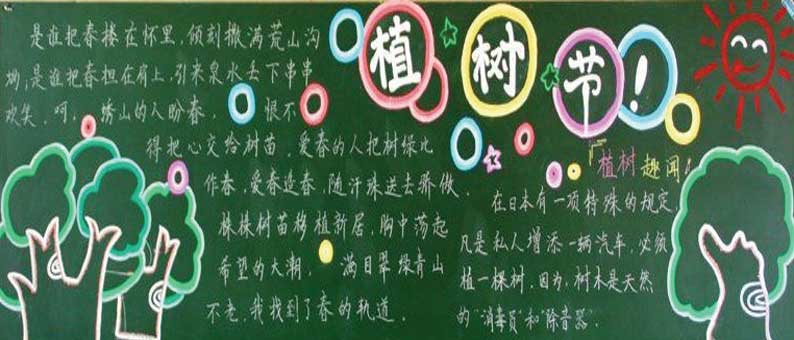 植树节!
是谁把春搂在怀里,倾刻撒满荒山沟
坳;是谁把春担在肩上,引来泉水丢下串串
欢笑。呵,绣山的人盼春,恨不
得把心交给树苗,爱春的人把树绿比
作春,爱春造春,随汗珠送去骄傲。
株株树苗移植新居,胸中荡起
希望的大潮,满目翠绿青山
不老,我找到了春的轨道。
『植树趣闻』
在日本有一项特殊的规定,
凡是私人增添一辆汽车,必须
植一棵树,因为,树木是天然
的“消毒员”和“除音器”